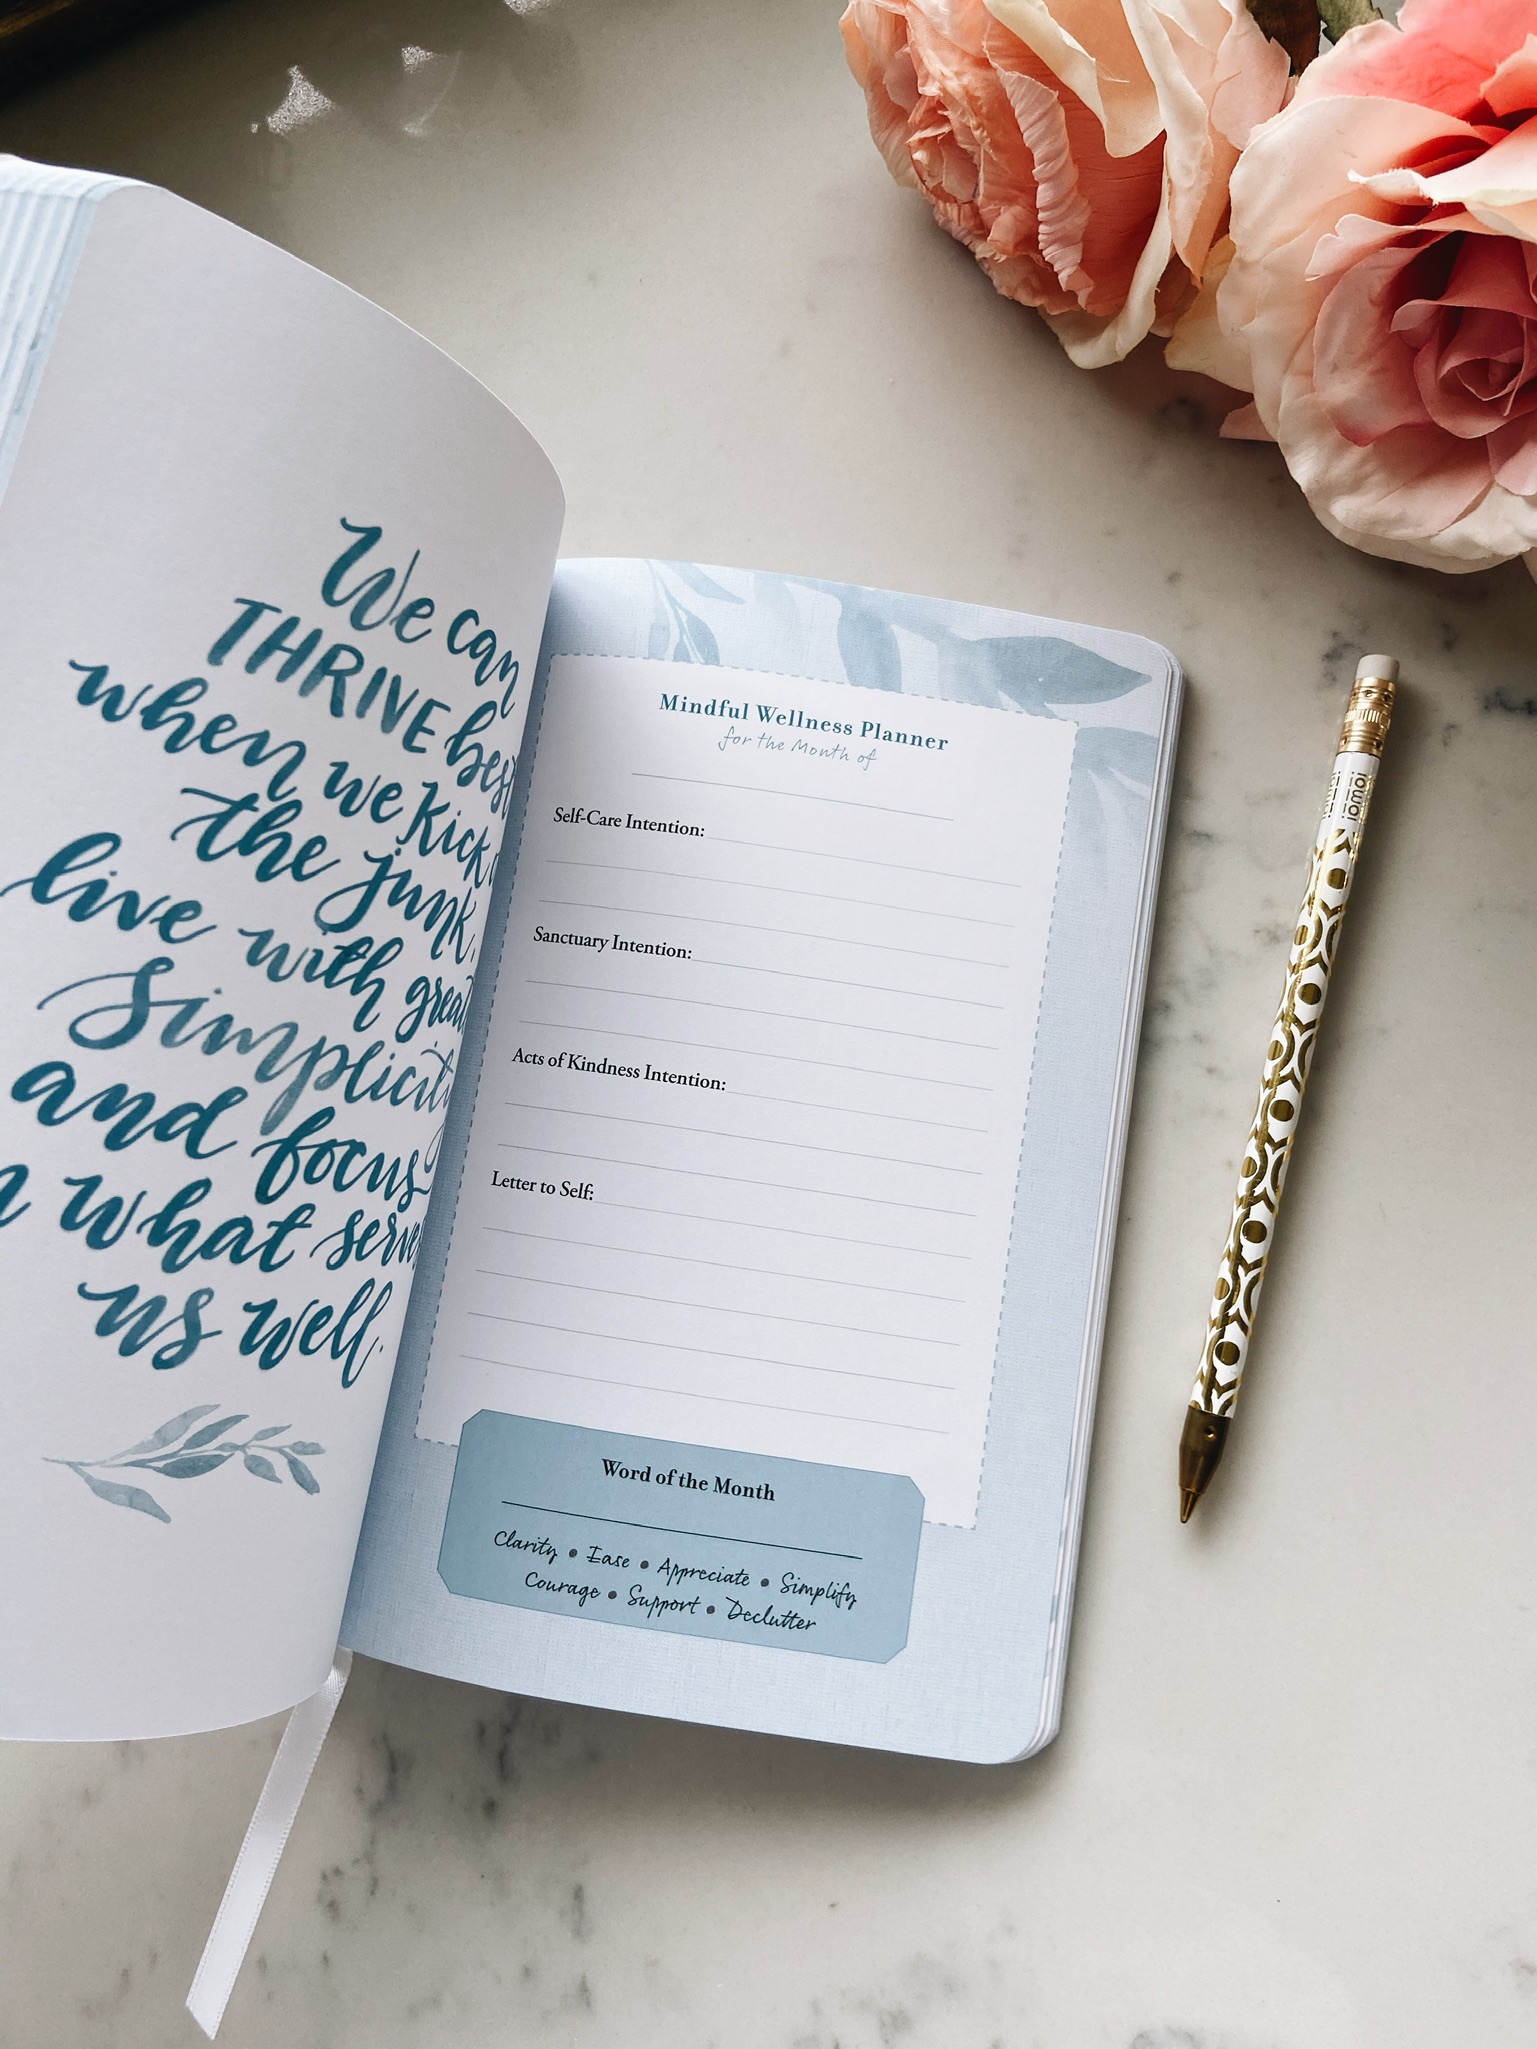 We can
THRIVE best
when we kick
the junk,
live with great
Simplicity
and focus
what serves
us well.
Mindful Wellness Planner
for the Month of
Self-Care Intention:
Sanctuary Intention:
Acts of Kindness Intention:
Letter to Self:
Word of the Month
Clarity • Ease • Appreciate • Simplify
Courage • Support • Declutter